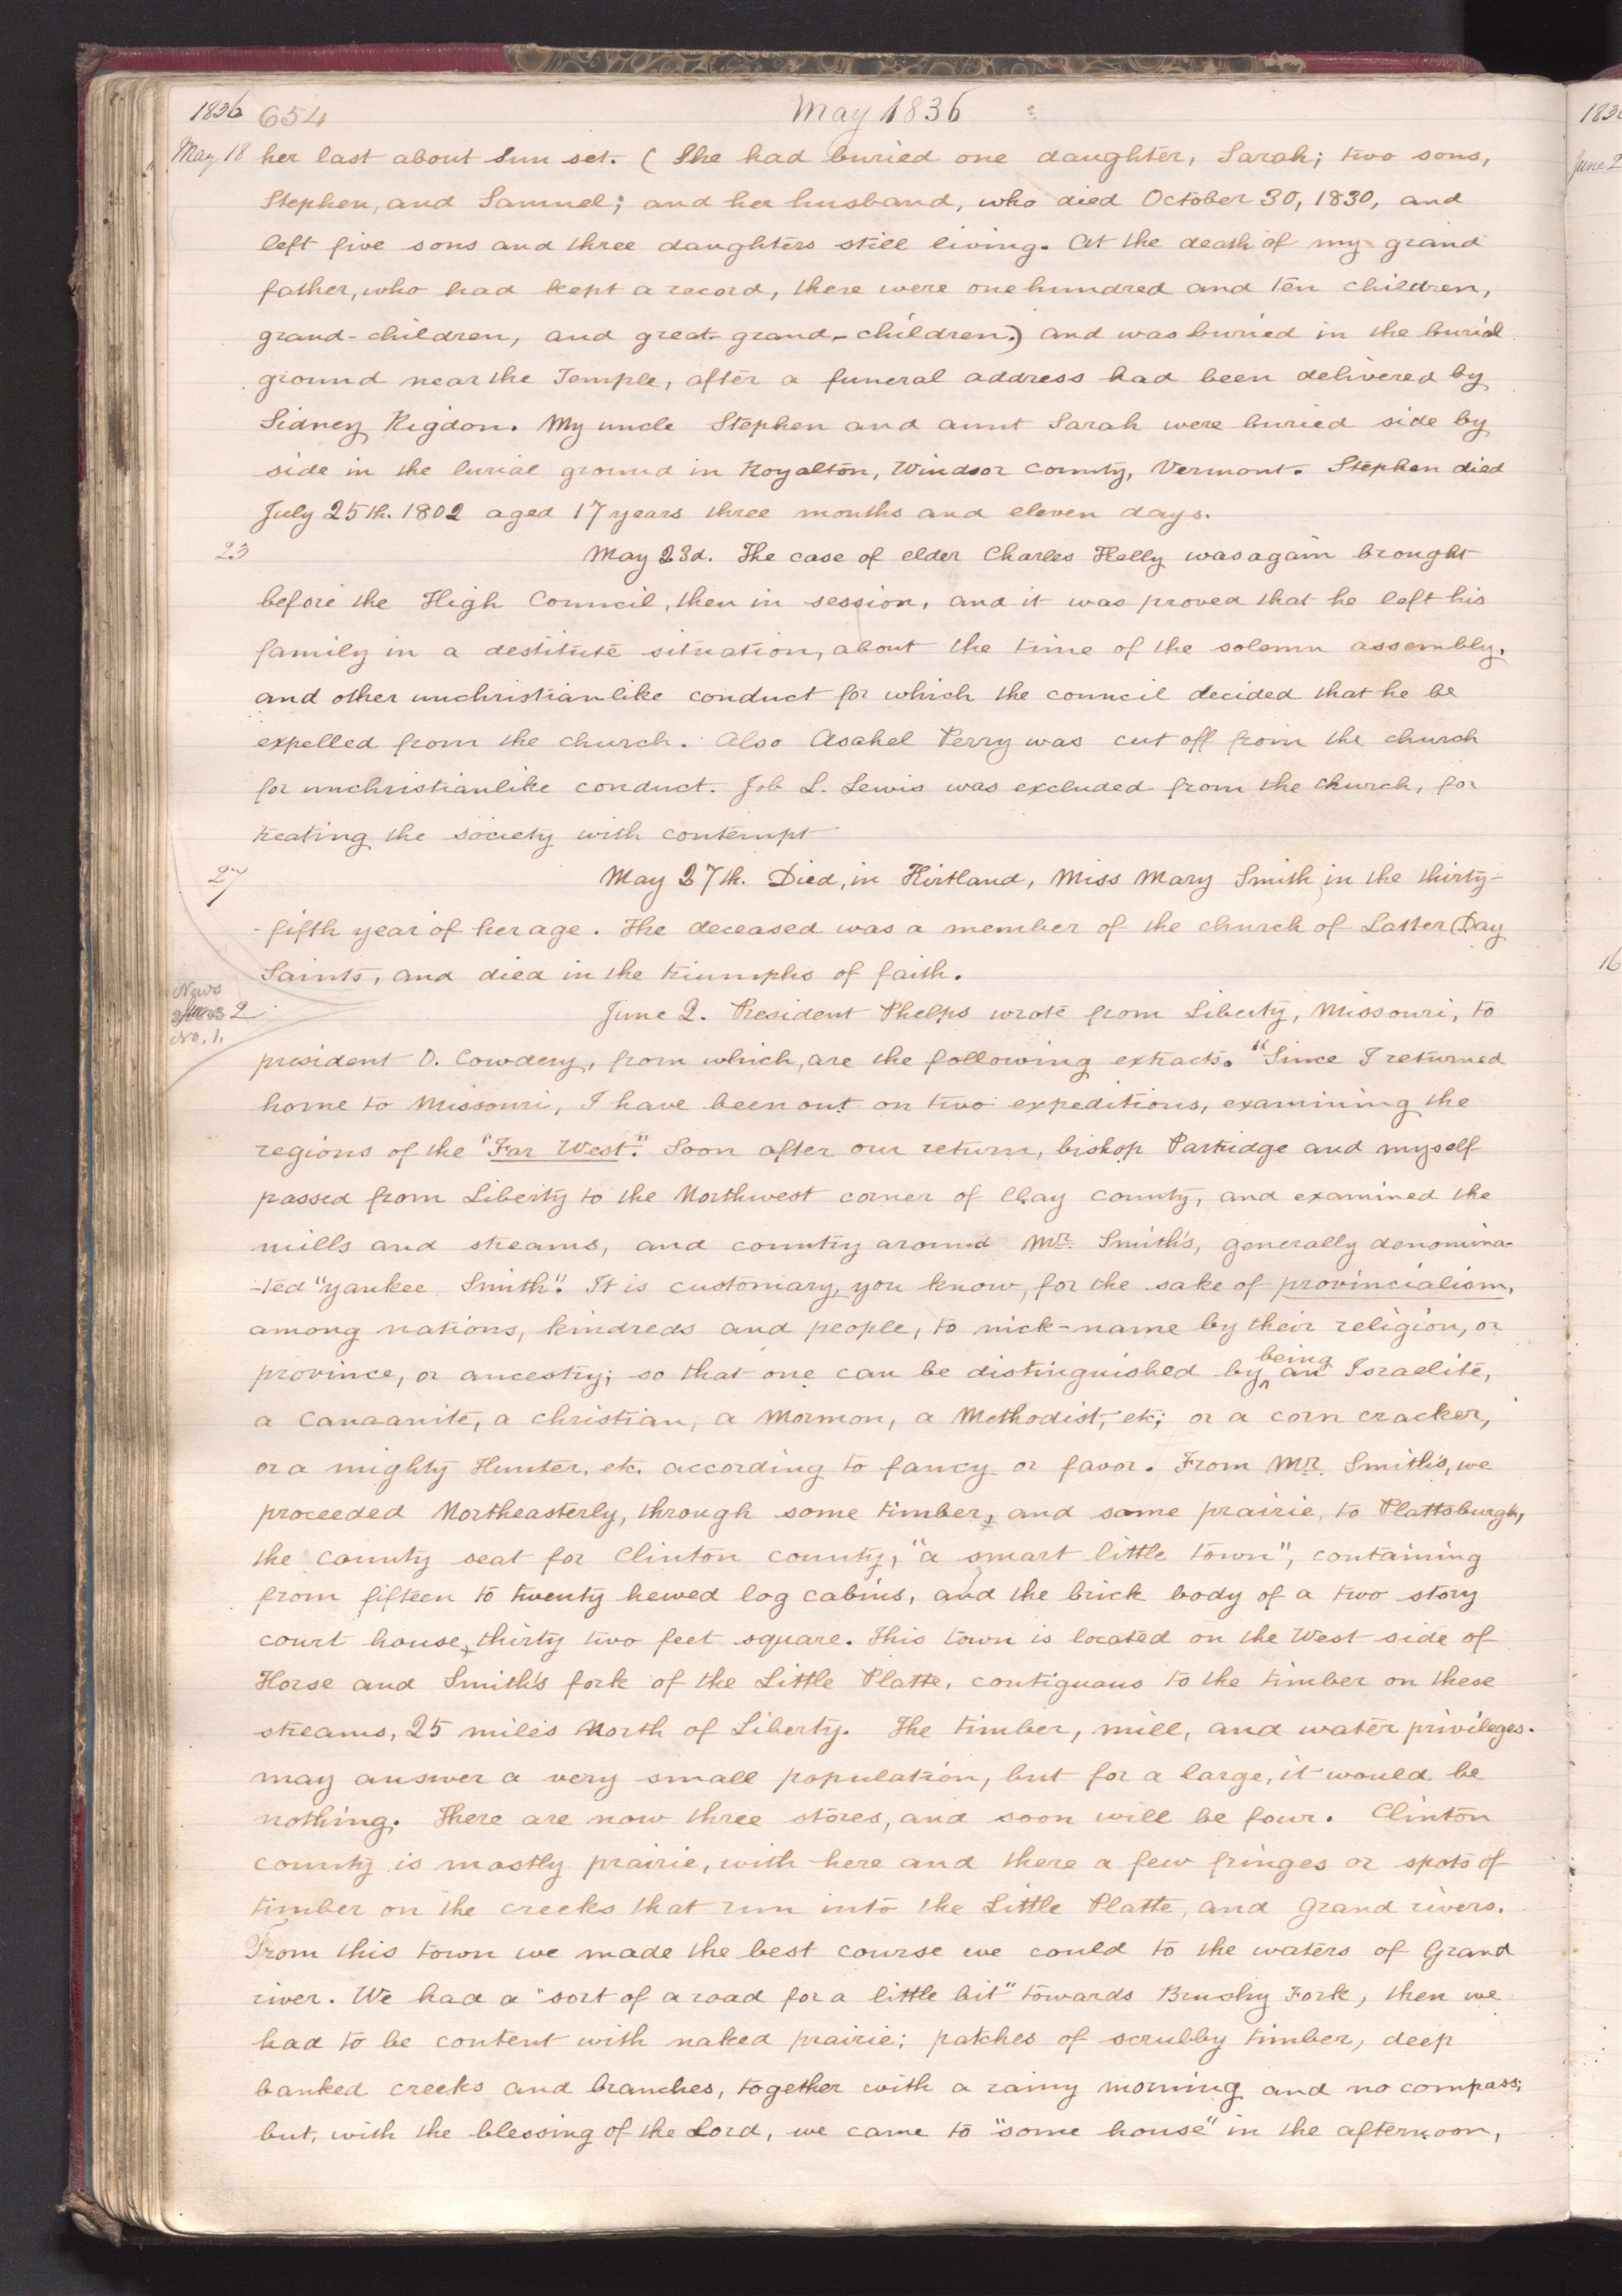 1836 654 May 1836
May 18 her last about Sun set. (She had buried one daughter, Sarah; two sons,
Stephen, and Samuel; and her husband, who died October 30, 1830, and
left five sons and three daughters still living. At the death of my grand
father, who had kept a record, there were one hundred and ten children,
grand-children, and great-grand-children.) and was buried in the burial
ground near the Temple, after a funeral address had been delivered by
Sidney Rigdon. My uncle Stephen and aunt Sarah were buried side by
side in the burial ground in Royalton, Windsor County, Vermont. Stephen died
July 25th. 1802 aged 17 years three months and eleven days.
23 May 23d. The case of elder Charles Kelly was again brought
before the High Council, then in session, and it was proved that he left his
family in a destitute situation, about the time of the solemn assembly,
and other unchristianlike conduct for which the council decided that he be
expelled from the church. Also Asahel Perry was cut off from the church
for unchristianlike conduct. Job L. Lewis was excluded from the church, for
treating the society with contempt
27 May 27th. Died, in Kirtland, Miss Mary Smith in the thirty-
-fifth year of her age. The deceased was a member of the church of Latter Day
Saints, and died in the triumphs of faith.
News
June 2 June 2. President Phelps wrote from Liberty, Missouri, to
No. 1.
president O. Cowdery, from which, are the following extracts. "Since I returned
home to Missouri, I have been out on two expeditions, examining the
regions of the "Far West". Soon after our return, bishop Partridge and myself
passed from Liberty to the Northwest corner of Clay county, and examined the
mills and streams, and country around Mr. Smith's, generally denomina-
-ted "yankee Smith". It is customary, you know, for the sake of provincialism,
among nations, kindreds and people, to nick-name by their religion, or
province, or ancestry; so that one can be distinguished by being an Israelite,
a Canaanite, a christian, a Mormon, a Methodist, etc; or a corn cracker,
or a mighty Hunter, etc. according to fancy or favor. From Mr. Smith's, we
proceeded Northeasterly, through some timber, and some prairie, to Plattsburgh,
the county seat for Clinton county, "a smart little town", containing
from fifteen to twenty hewed log cabins, and the brick body of a two story
court house, thirty two feet square. This town is located on the West side of
Horse and Smith's fork of the Little Platte, contiguous to the timber on these
streams, 25 miles North of Liberty. The timber, mill, and water privileges.
may answer a very small population, but for a large, it would be
nothing. There are now three stores, and soon will be four. Clinton
county is mostly prairie, with here and there a few fringes or spots of
timber on the creeks that run into the Little Platte, and Grand rivers.
From this town we made the best course we could to the waters of Grand
river. We had a "sort of a road for a little bit" towards Brushy Fork, then we
had to be content with naked prairie; patches of scrubby timber, deep
banked creeks and branches, together with a rainy morning and no compass;
but, with the blessing of the Lord, we came to "some house" in the afternoon,
June 2
16